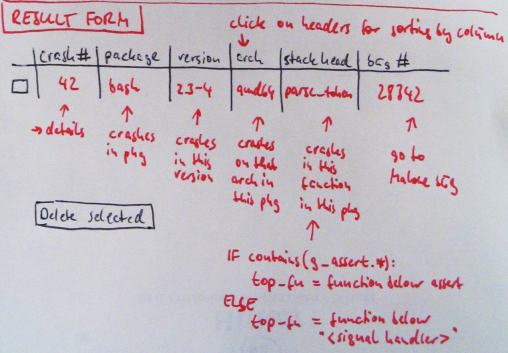 RESULT FORM
click on headers for sorting by column
crash# package version arch stack head bug #
42 bash 2.3-4 amd64 parse_token 28342
→ details
crashes
in pkg
crashes
in this
version
crashes
on that
arch in
this pkg
crashes
in this
function
in this pkg
go to
Malone bug
Delete selected
IF contains(g_assert.*):
top_fn = function below assert
ELSE
top_fn = function below
"<signal handler>"